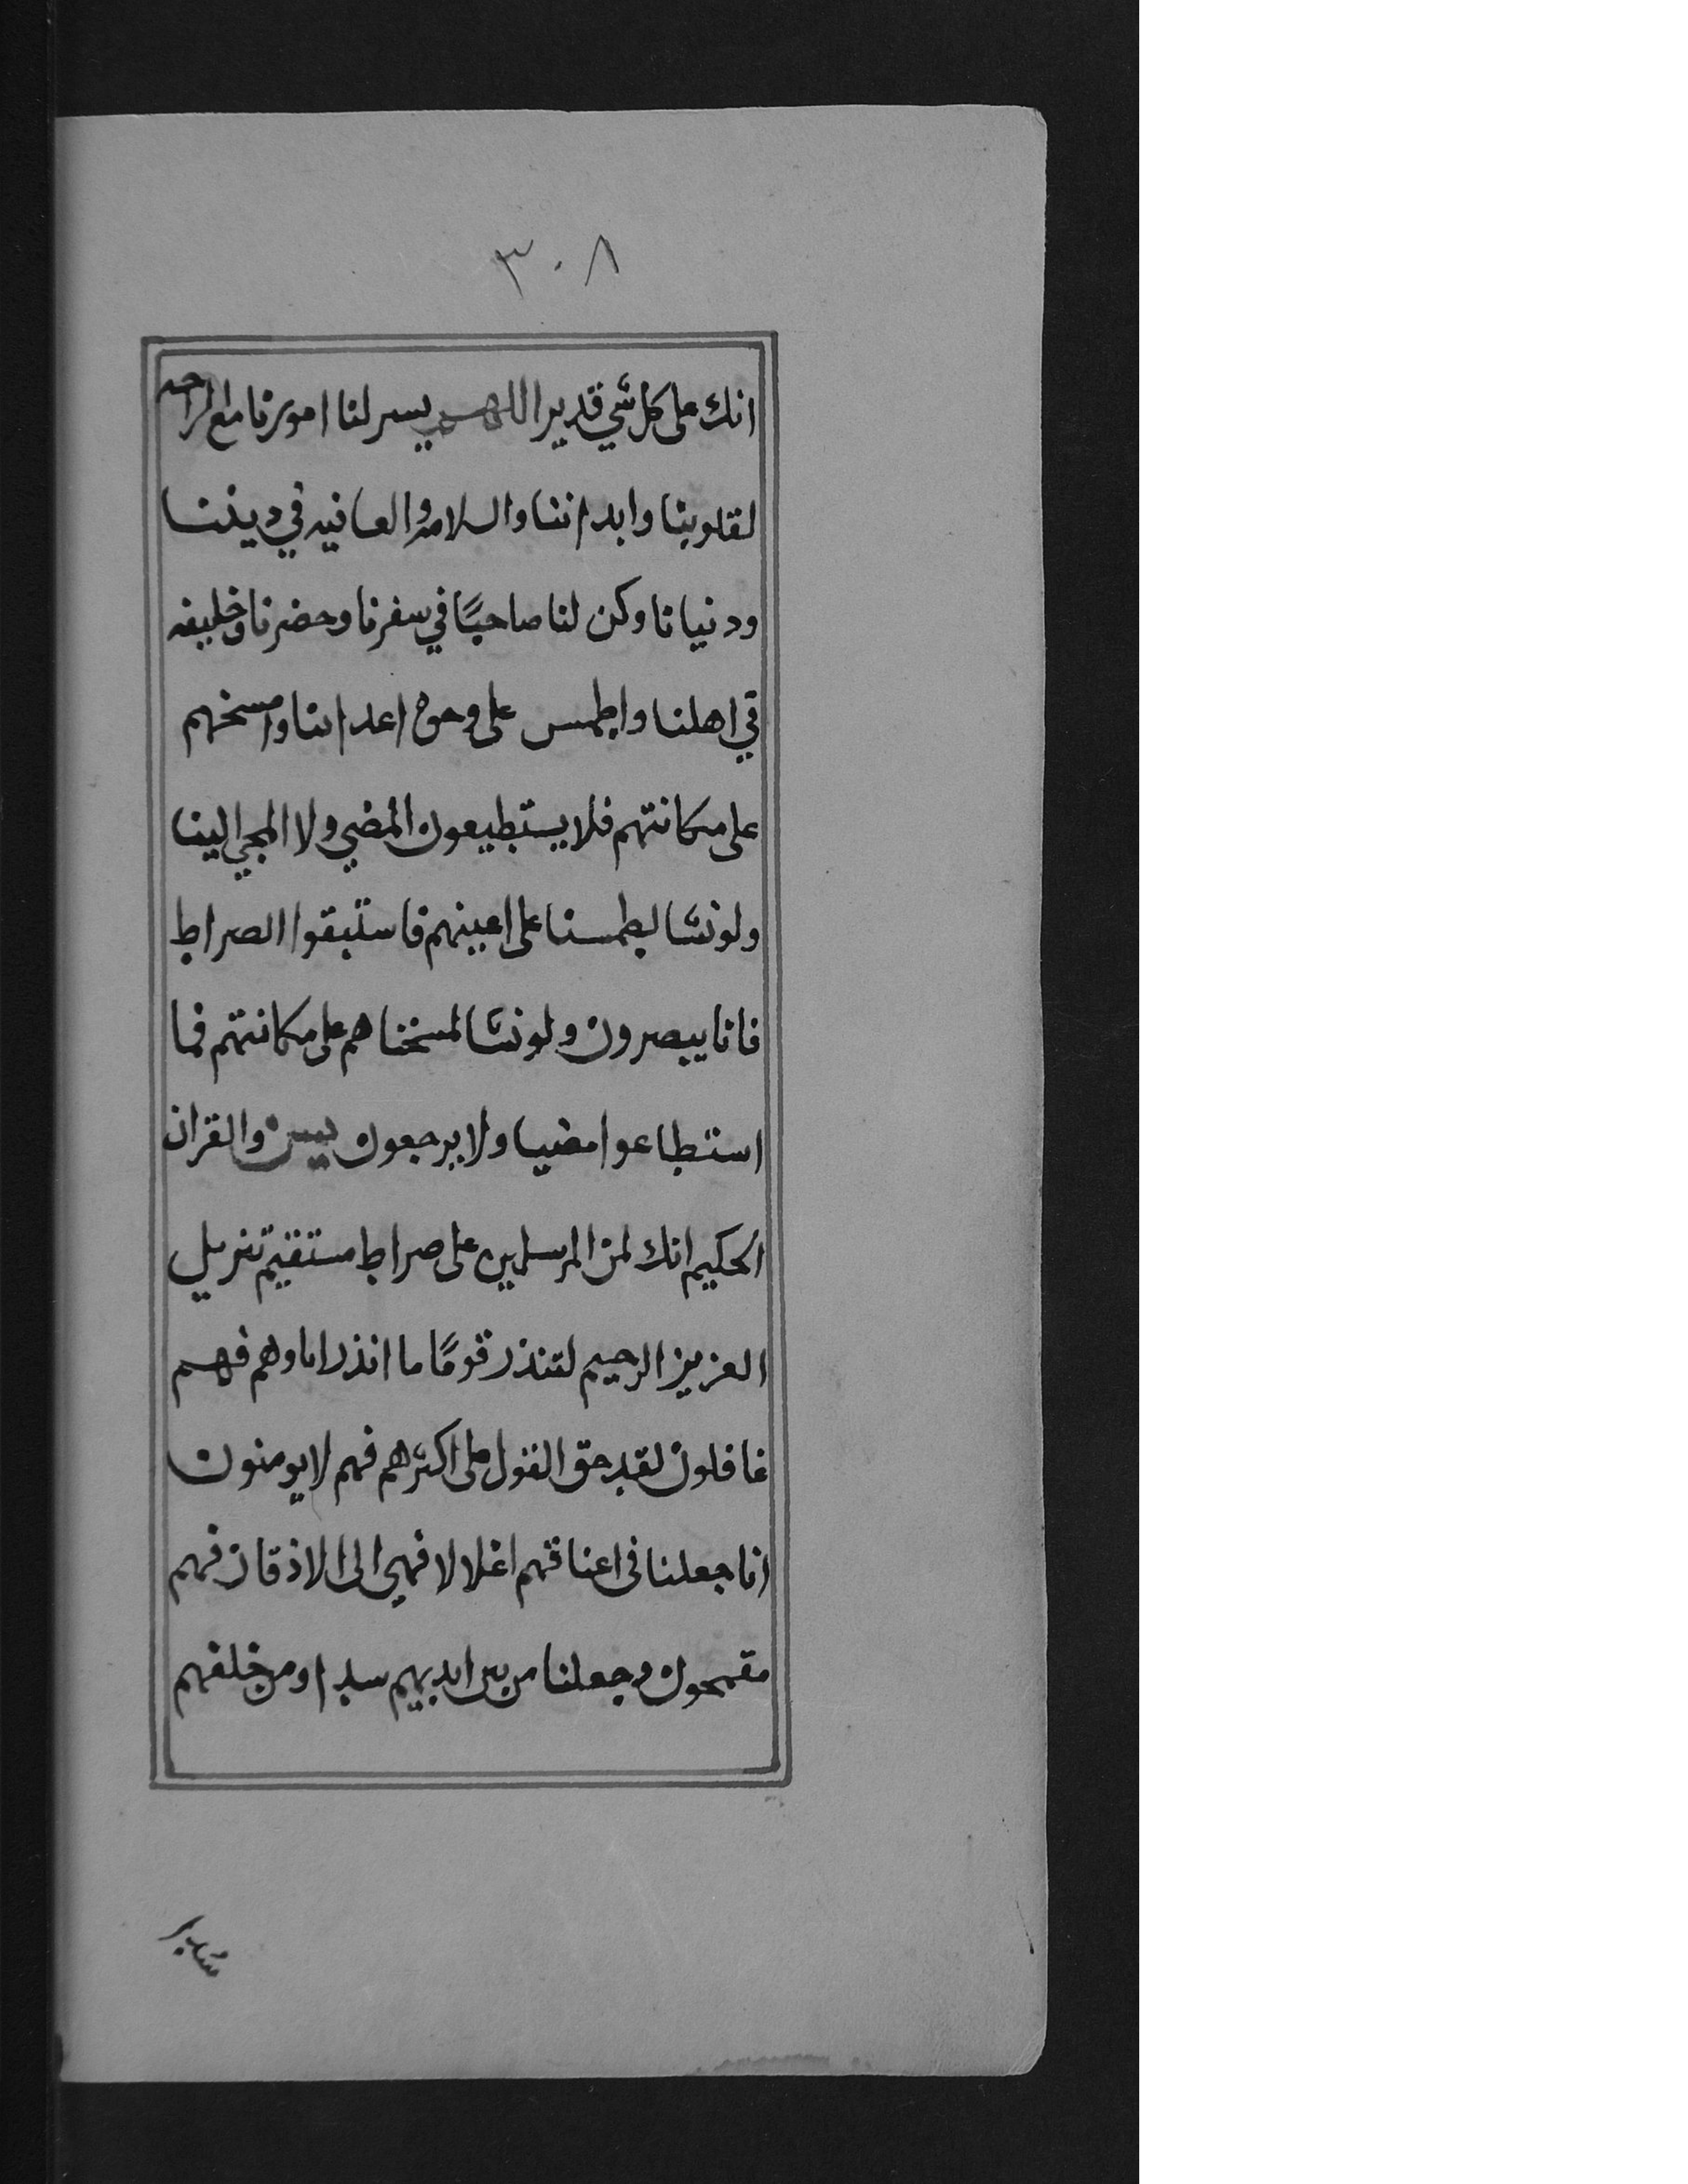 ٣٠٨
انك على كل شي قدير اللهم يسر لنا امورنا مع الراحه
لقلوبنا وابداننا والسلامه والعافيه في ديننا
ودنيانا وكن لنا صاحبًا في سفرنا وحضرنا وخليفه
في اهلنا واطمس على وجوه اعداىنا وامسخهم
على مكانتهم فلا يستطيعون المضي ولا المجي الينا
ولونشا لطمسنا على اعينهم فاستبقوا الصراط
فانا يبصرون ولو نشا لمسخناهم على مكانتهم فما
استطاعوا مضيا ولا يرجعون يس والقران
الحكيم انك لمن المرسلين على صراط مستقيم تنزيل
العزيز الرحيم لتنذر قومًا ما انذر اباوهم فهم
غافلون لقد حق القول على اكثرهم فهم لا يومنون
انا جعلنا في اعناقهم اغلالا فهي الى الاذقان فهم
مقمحون وجعلنا من بين ايديهم سدا ومن خلفهم